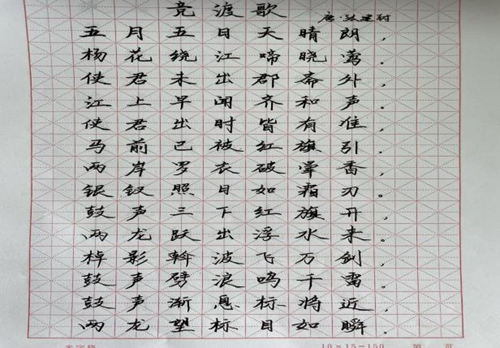 竞渡歌
唐·张建封
五月五日天晴朗，
杨花绕江啼晓莺。
使君未出郡斋外，
江上早闻齐和声。
使君出时皆有准，
马前已被红旗引。
两岸罗衣破晕香，
银钗照日如霜刃。
鼓声三下红旗开，
两龙跃出浮水来。
棹影斡波飞万剑，
鼓声劈浪鸣千雷。
鼓声渐急标将近，
两龙望标目如瞬。
10×15=150